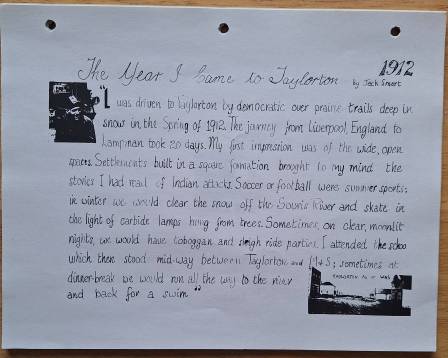 1912
The Year I Came to Taylorton - by Jack Smart
"I was driven to Taylorton by democratic over prairie trails deep in
snow in the Spring of 1912. The journey from Liverpool, England to
Lampman took 20 days. My first impression was of the wide, open
spaces. Settlements built in a square formation brought to my mind the
stories I had read of Indian attacks. Soccer or football were summer sports;
in winter we would clear the snow off the Souris River and skate in
the light of carbide lamps hung from trees. Sometimes, on clear, moonlit
nights, we would have toboggan and sleigh ride parties. I attended the school
which then stood mid-way between Taylorton and M+S; sometimes at
dinner-break we would run all the way to the river
and back for a swim"
TAYLORTON AS IT WAS